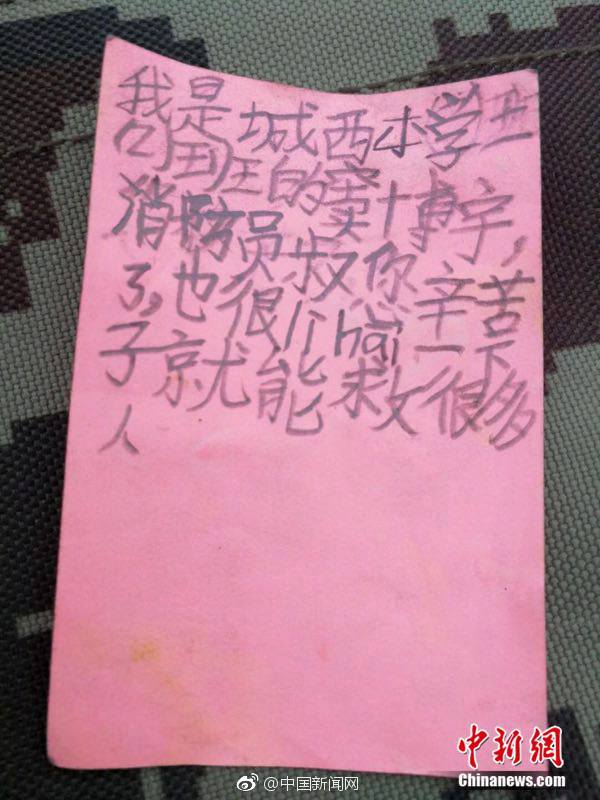 我是城西小学二
班的窦博宇,
消防员叔你辛苦
了,也很li hai一下
子就能救很多
人
中新网
Chinanews.com
@中国新闻网